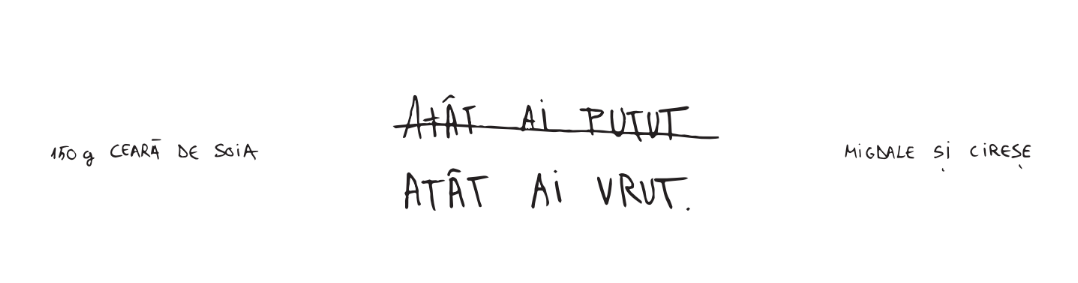 150 g CEARĂ DE SOIA
ATÂT AI PUTUT
ATÂT AI VRUT.
MIGDALE ȘI CIREȘE